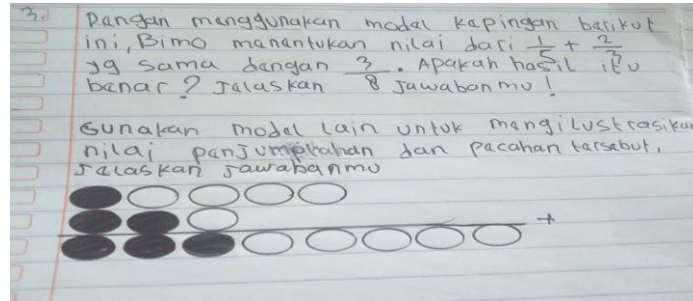 3.) Dangan manggunakan modal kapingan barikut
ini, Bimo manantukan nilai dari 1/5 + 2/3
yg sama dangan 3/8. Apakah hasil itu
banar? Jalaskan Jawaban mu!
Gunakan modal lain untuk mangilustrasikan
nilai panjumplahan dan pacahan tarsabut.
Jalaskan Jawabanmu
+